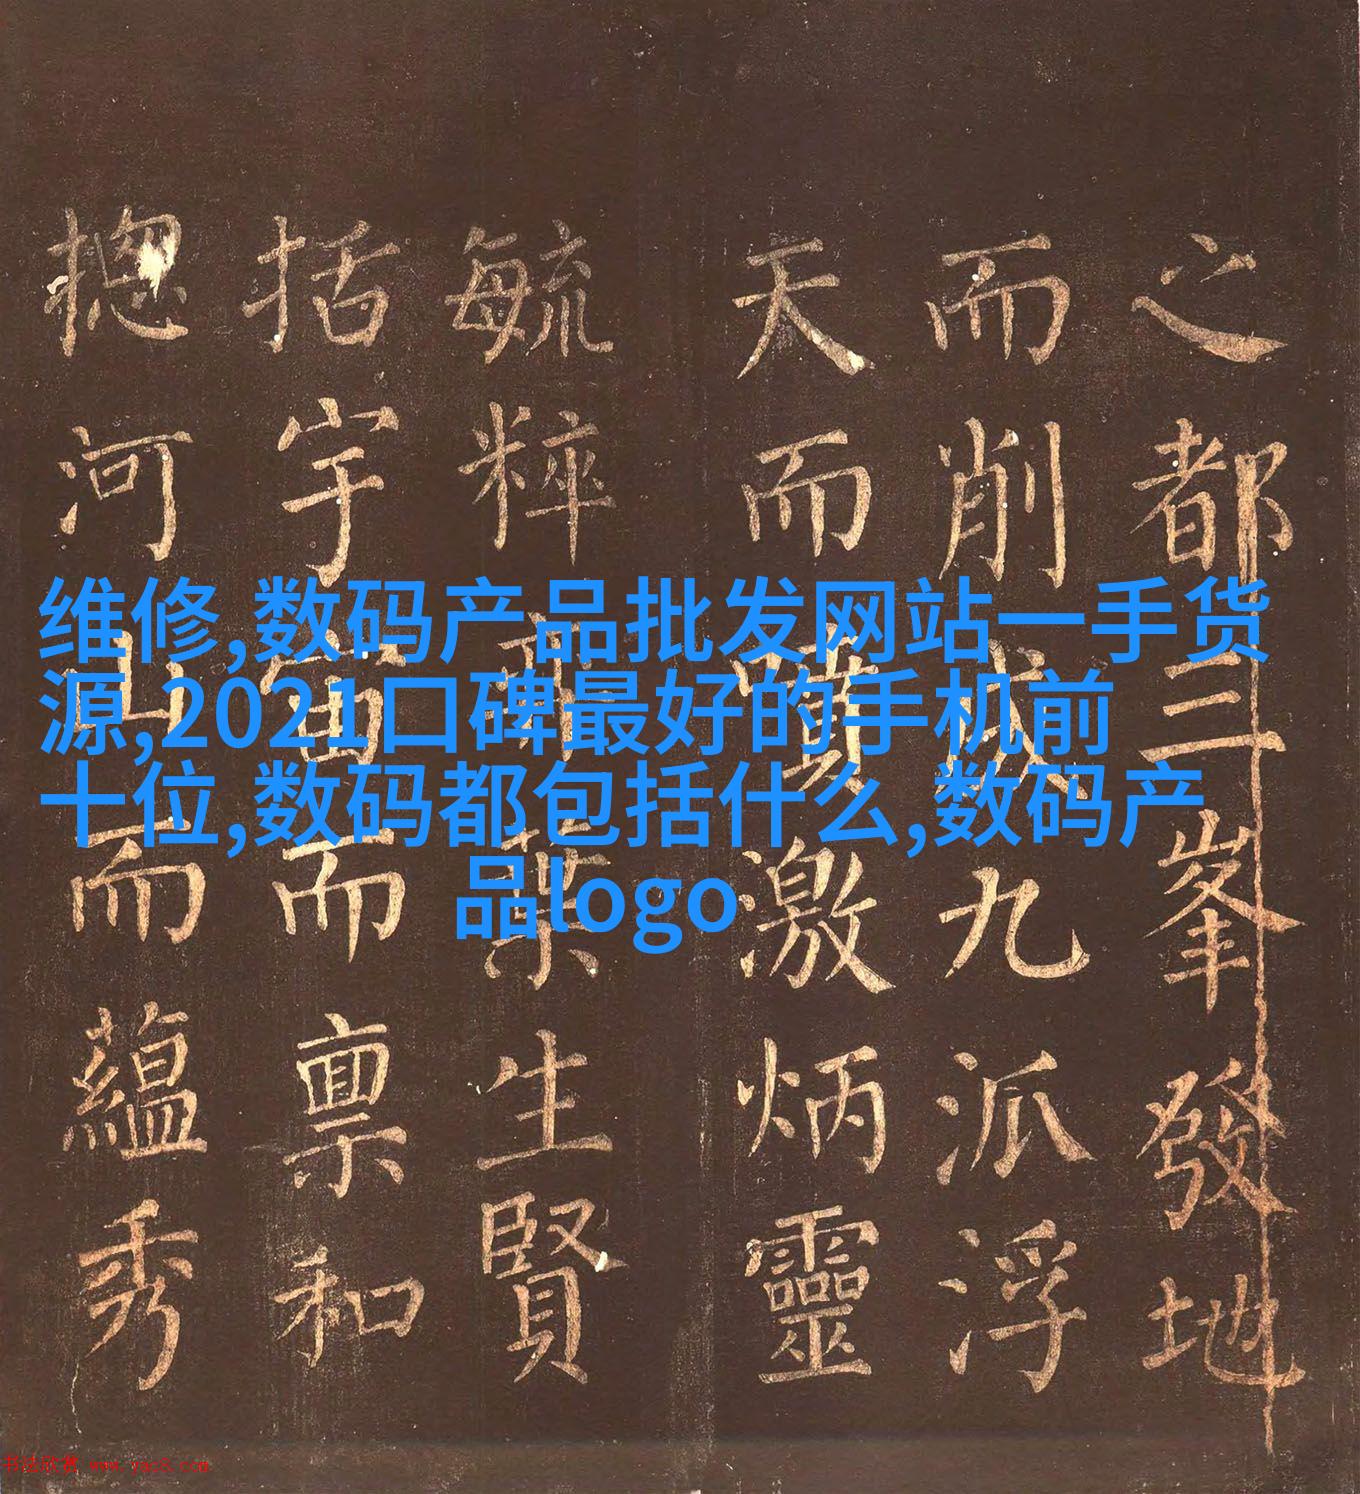 维修,数码产品批发网站一手货
源,2021口碑最好的手机前
十位,数码都包括什么,数码产
品logo
之都三峯發地
而削成九派浮
天而噴激炳靈
毓粹葉生賢
括宇宙而禀和
揔河山而蘊秀
书法欣赏 www.yac8.com